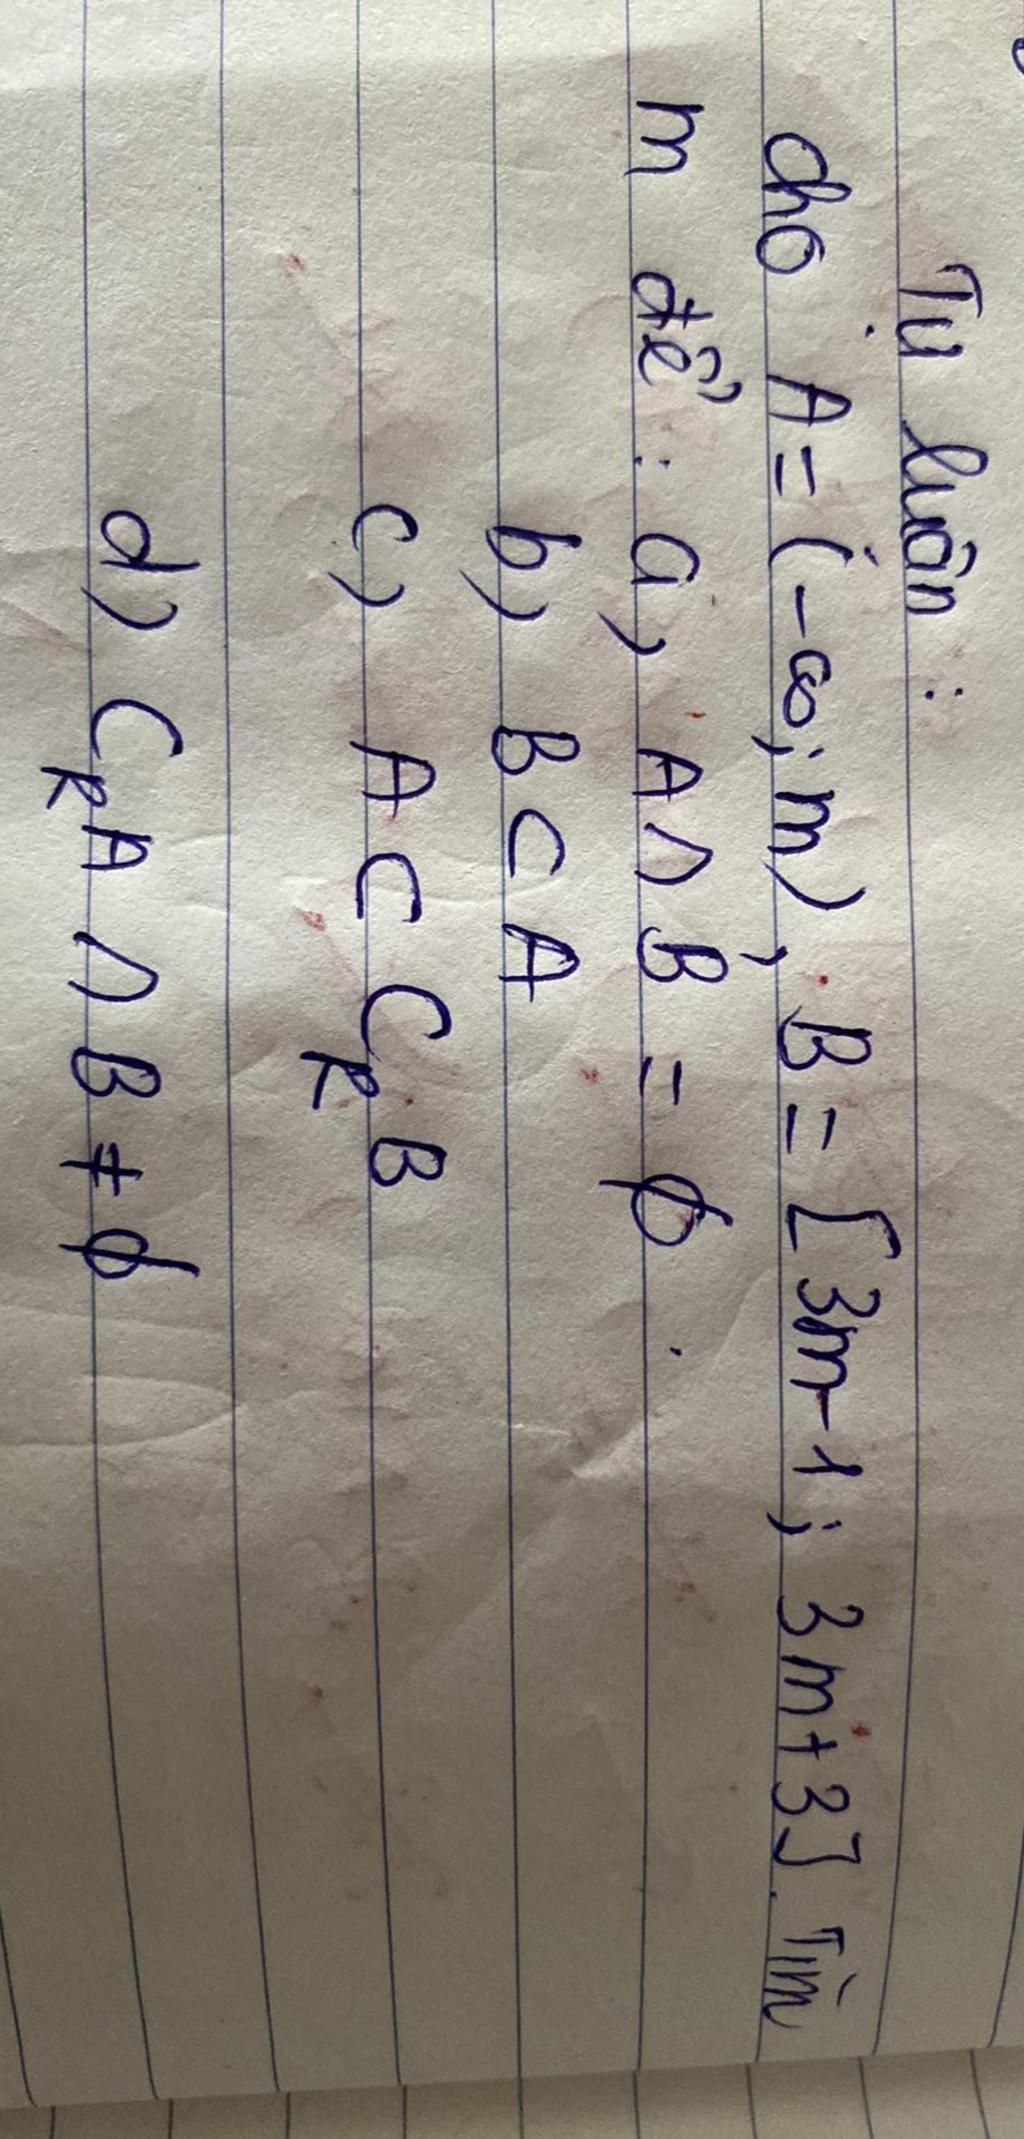 Tự luận :
cho A = (-∞; m), B = [3m-1; 3m+3]. Tìm
m để : a, A ∩ B = ϕ.
b, B ⊂ A
c, A ⊂ C_R B
d) C_R A ∩ B ≠ ϕ